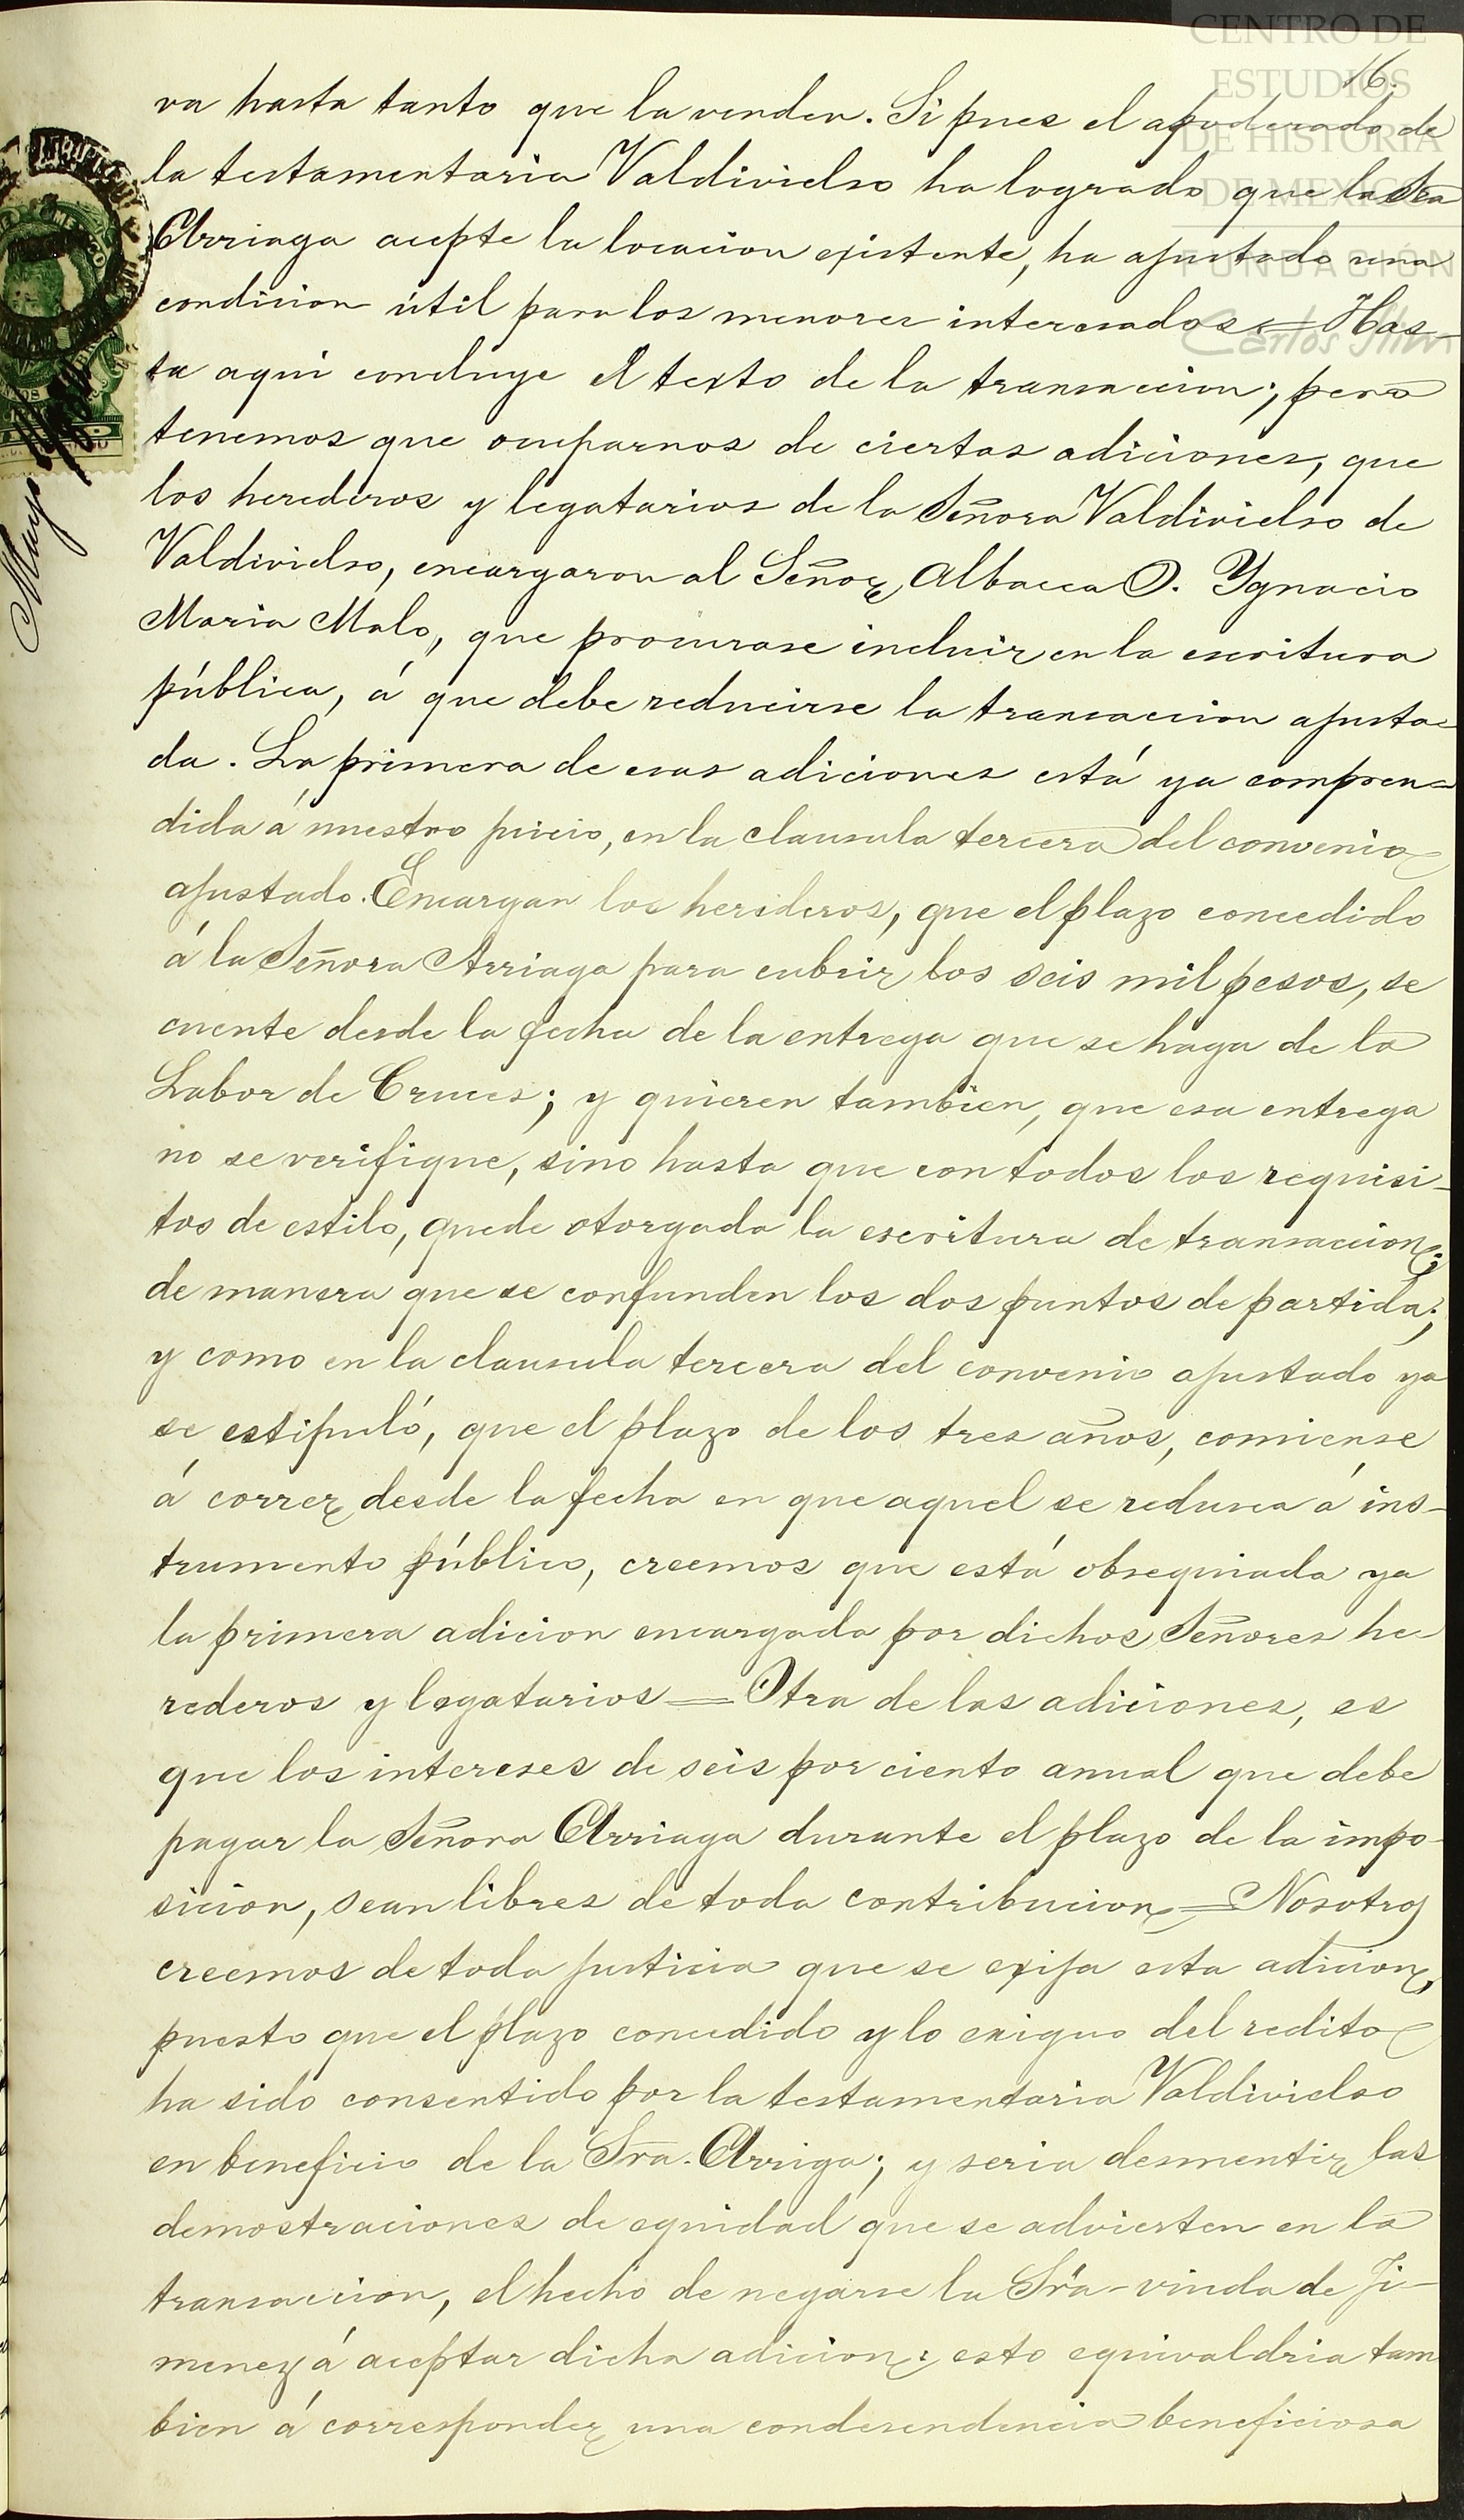 CENTRO DE
ESTUDIOS
DE HISTORIA
DE MEXICO
FUNDACIÓN
Carlos Slim
16.
va hasta tanto que la venden. Si pues el apoderado de
la testamentaria Valdivielso ha logrado que la Sra
Arriaga acepte la locacion existente, ha ajustado una
condicion útil para los menores interesados = Has-
ta aqui concluye el texto de la transaccion; pero
tenemos que ocuparnos de ciertas adiciones, que
los herederos y legatarios de la Señora Valdivielso de
Valdivielso, encargaron al Señor Albacea D. Ygnacio
Maria Malo, que procurase incluir en la escritura
pública, á que debe reducirse la transaccion ajusta-
da. La primera de esas adiciones está ya compren-
dida á nuestro juicio, en la clausula tercera del convenio
ajustado. Encargan los herideros, que el plazo concedido
á la Señora Arriaga para cubrir los seis mil pesos, se
cuente desde la fecha de la entrega que se haga de la
Labor de Cruces; y quieren tambien, que esa entrega
no se verifique, sino hasta que con todos los requisi-
tos de estilo, quede otorgada la escritura de transaccion;
de manera que se confunden los dos puntos de partida;
y como en la clausula tercera del convenio ajustado ya
se estipuló, que el plazo de los tres años, comiense
á correr desde la fecha en que aquel se redusca á ins-
trumento público, creemos que está obsequiada ya
la primera adicion encargada por dichos Señores he-
rederos y legatarios = Otra de las adiciones, es
que los intereses de seis por ciento anual que debe
pagar la Señora Arriaga durante el plazo de la impo-
sicion, sean libres de toda contribucion = Nosotros
creemos de toda justicia que se exija esta adicion,
puesto que el plazo concedido y lo exiguo del redito
ha sido consentido por la testamentaria Valdivielso
en beneficio de la Sra. Arriga; y seria desmentir las
demostraciones de equidad que se advierten en la
transaccion, el hecho de negarse la Sra. viuda de Ji-
menez á aceptar dicha adicion: esto equivaldria tam
bien á corresponder una condesendencia beneficiosa
Mayo